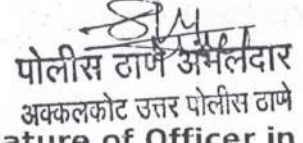 पोलीस ठाणे अंमलदार
अक्कलकोट उत्तर पोलीस ठाणे
ature of Officer in